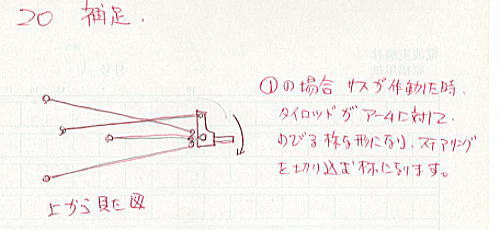 20 補足.
①の場合 サスが作動した時、
タイロッドがアームに対して
のびる様な形になり、ステアリング
を切り込む様になります。
上から見た図